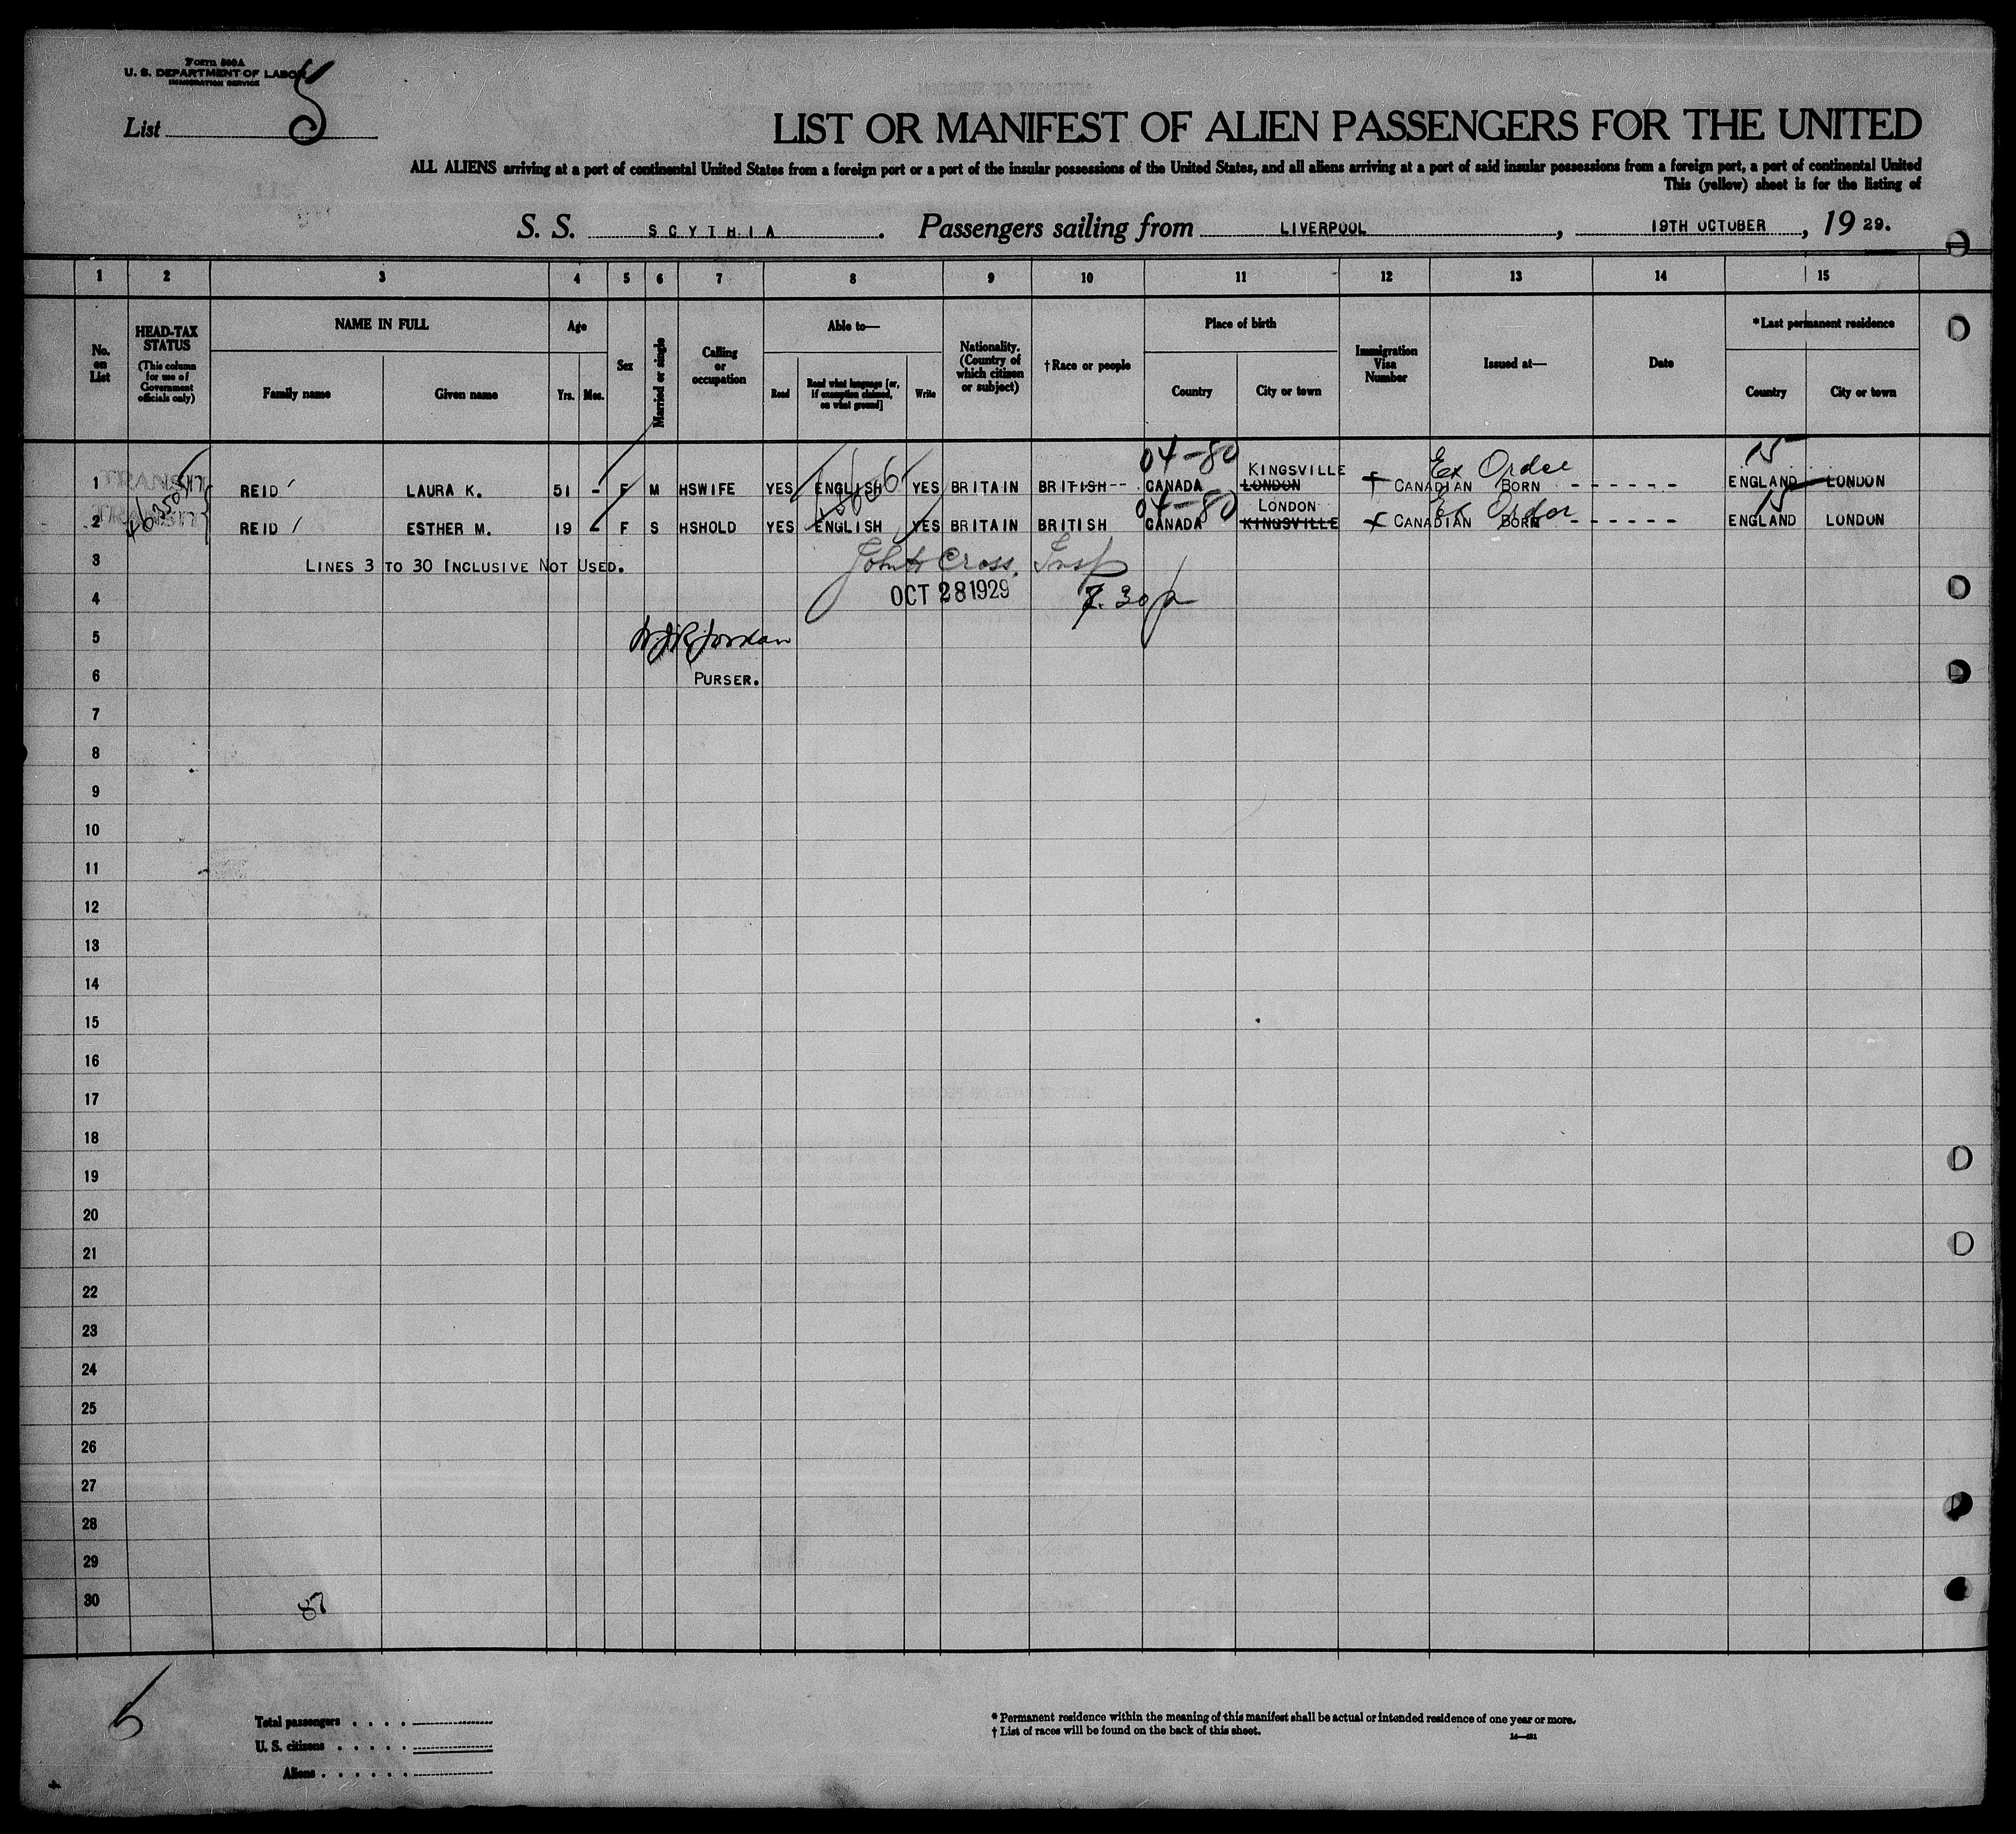 Form 500A
U. S. DEPARTMENT OF LABOR
IMMIGRATION SERVICE
List 5
LIST OR MANIFEST OF ALIEN PASSENGERS FOR THE UNITED
ALL ALIENS arriving at a port of continental United States from a foreign port or a port of the insular possessions of the United States, and all aliens arriving at a port of said insular possessions from a foreign port, a port of continental United
This (yellow) sheet is for the listing of
S. S. SCYTHIA. Passengers sailing from LIVERPOOL, 19TH OCTOBER, 19 29.
1 2 3 4 5 6 7 8 9 10 11 12 13 14 15
No. on List
HEAD-TAX STATUS (This column for use of Government officials only)
NAME IN FULL
Family name Given name
Age
Yrs. Mos.
Sex
Married or single
Calling or occupation
Able to—
Read Read what language [or, if exemption claimed, on what ground] Write
Nationality. (Country of which citizen or subject)
†Race or people
Place of birth
Country City or town
Immigration Visa Number
Issued at—
Date
*Last permanent residence
Country City or town
04-80 Ex Order
KINGSVILLE
1 TRANSIT REID LAURA K. 51 - F M HSWIFE YES ENGLISH YES BRITAIN BRITISH-- CANADA LONDON CANADIAN BORN - - - - - - ENGLAND LONDON
04-80 LONDON Ex Order
2 TRANSIT REID ESTHER M. 19 - F S HSHOLD YES ENGLISH YES BRITAIN BRITISH CANADA KINGSVILLE CANADIAN BORN - - - - - - ENGLAND LONDON
3 LINES 3 TO 30 INCLUSIVE NOT USED. John H Cross. Insp
4 OCT 28 1929 7.30p
5
6 PURSER.
7
8
9
10
11
12
13
14
15
16
17
18
19
20
21
22
23
24
25
26
27
28
29
30
87
5
Total passengers . . . .
U. S. citizens . . . . .
Aliens . . . . . .
* Permanent residence within the meaning of this manifest shall be actual or intended residence of one year or more.
† List of races will be found on the back of this sheet.